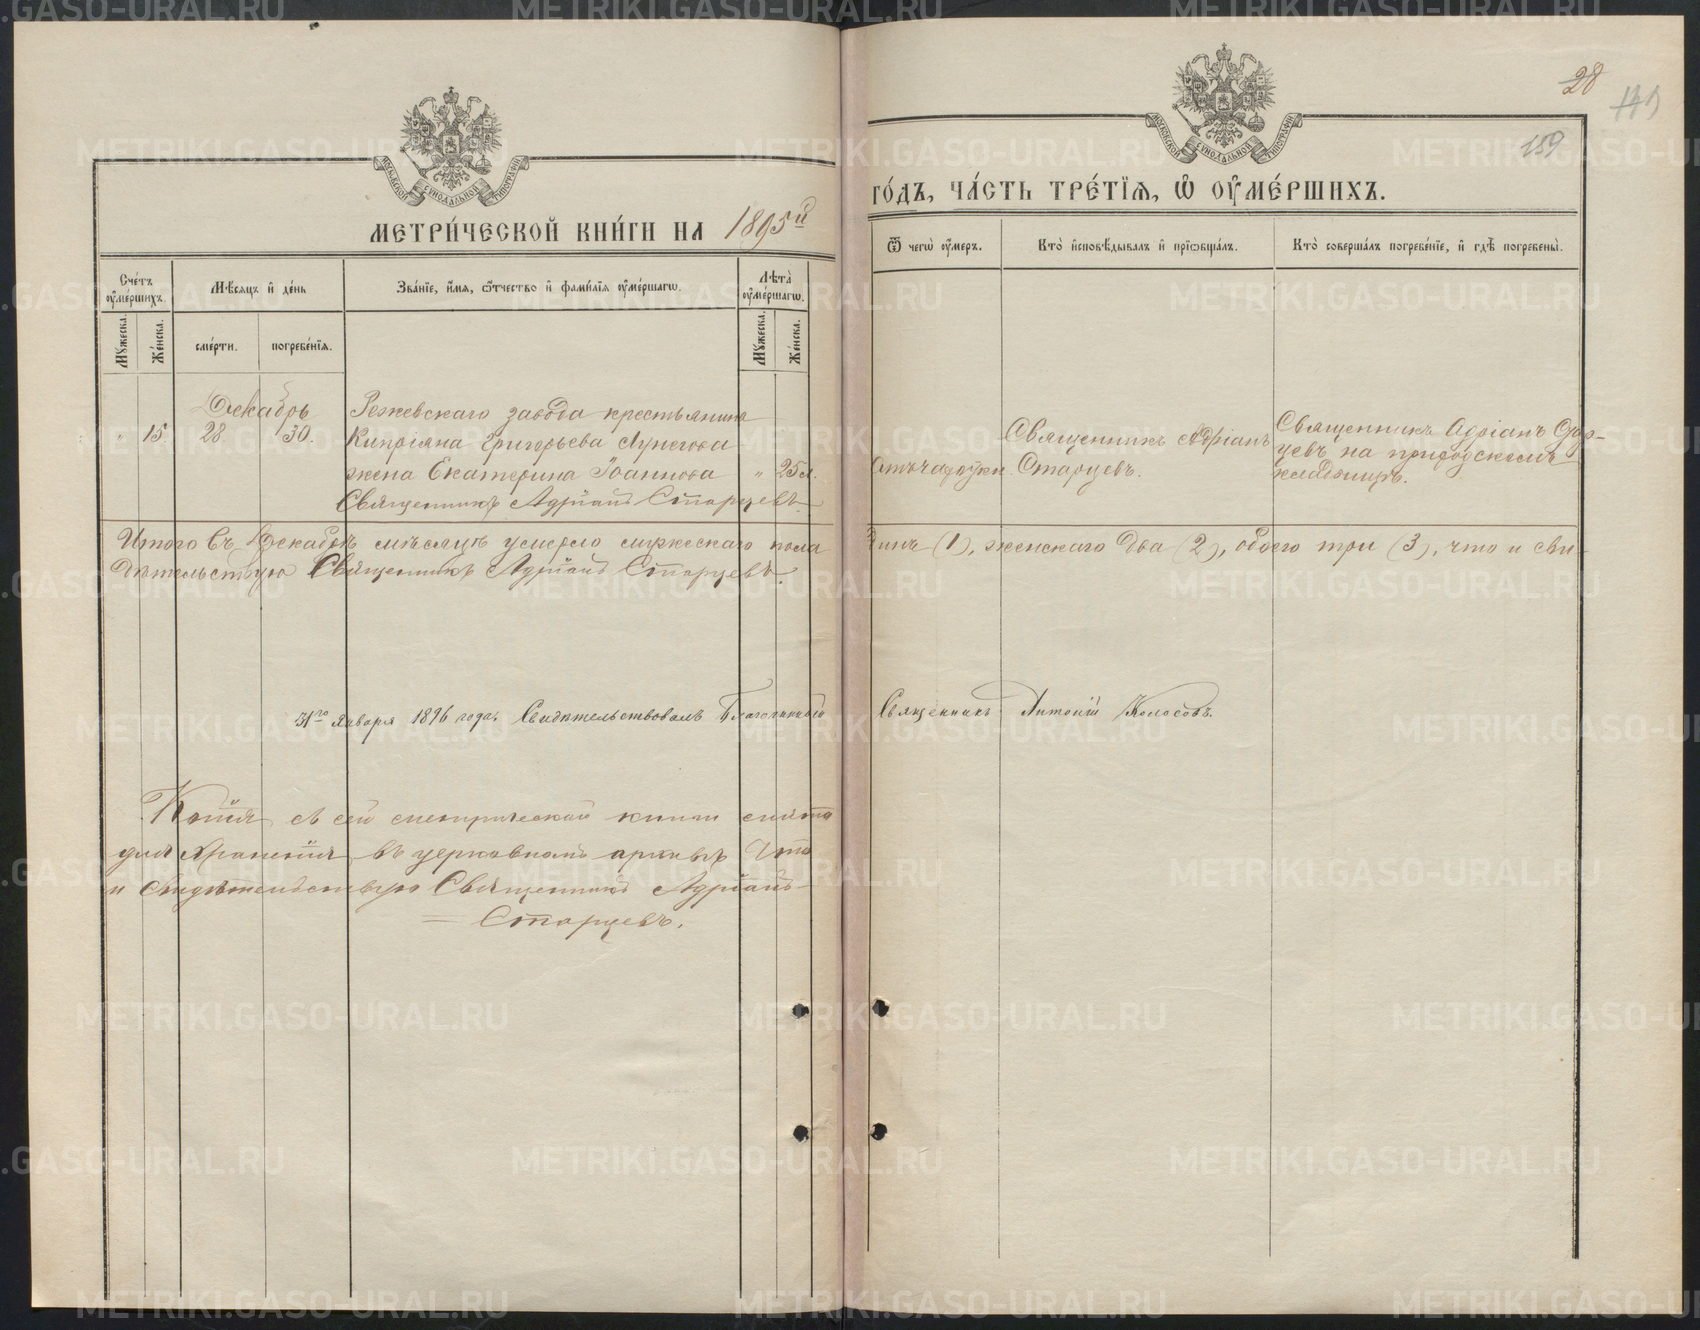 28
159
МОСКОВСКОЙ СѴНОДАЛЬНОЙ ТИПОГРАФІИ
МОСКОВСКОЙ СѴНОДАЛЬНОЙ ТИПОГРАФІИ
МЕТРИ́ЧЕСКОЙ КНИ́ГИ НА 1895й
ГО́ДЪ, ЧА́СТЬ ТРЕ́ТЇѦ, Ѽ ОУ҆МЕ́РШИХЪ.
Сче́тъ оу҆ме́ршихъ.
Мꙋжеска.
Же́нска.
Мѣ́сѧцъ и҆ де́нь
сме́рти.
погребе́нїѧ.
Зва́нїе, и҆́мѧ, ѻ҆́тчество и҆ фами́лїѧ оу҆ме́ршагѡ.
Лѣта̀ оу҆ме́ршагѡ.
Мꙋжеска.
Же́нска.
Ѿ чегѡ̀ оу҆́меръ.
Кто̀ и҆сповѣ́дывалъ и҆ прїѡбща́лъ.
Кто̀ соверша́лъ погребе́нїе, и҆ гдѣ̀ погребены̀.
Декабрь
" 15. 28. 30.
Режевскаго завода крестьянина
Кипріяна Григорьева
жена Екатерина Іоаннова " 25 л.
Священникъ Адріанъ Старцевъ.
Отъ чахотки
Священникъ Адріанъ
Старцевъ.
Священникъ Адріанъ Стар-
цевъ на приходскомъ
кладбищѣ.
Итого въ Декабрѣ мѣсяцѣ умерло мужескаго пола одинъ (1), женскаго два (2), обоего три (3), что и сви-
дѣтельствую Священникъ Адріанъ Старцевъ.
31го Января 1896 года. Свидѣтельствовалъ Благочинный Священникъ Антоній Колосовъ.
Копія съ сей метрической книги снята
для храненія въ церковномъ архивѣ Что
и свидѣтельствую Священникъ Адріанъ
= Старцевъ.
METRIKI.GASO-URAL.RU